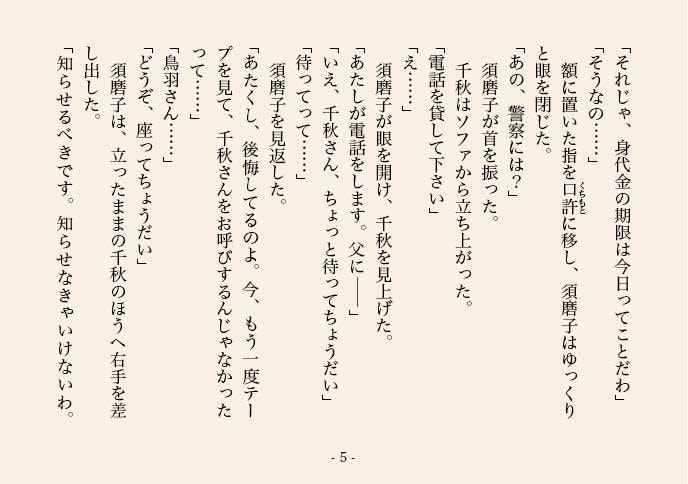 「それじゃ、身代金の期限は今日ってことだわ」
「そうなの……」
　額に置いた指を口許に移し、須磨子はゆっくり
と眼を閉じた。
「あの、警察には？」
　須磨子が首を振った。
　千秋はソファから立ち上がった。
「電話を貸して下さい」
「え……」
　須磨子が眼を開け、千秋を見上げた。
「あたしが電話をします。父に――」
「いえ、千秋さん、ちょっと待ってちょうだい」
「待ってって……」
　須磨子を見返した。
「あたくし、後悔してるのよ。今、もう一度テー
プを見て、千秋さんをお呼びするんじゃなかった
って……」
「鳥羽さん……」
「どうぞ、座ってちょうだい」
　須磨子は、立ったままの千秋のほうへ右手を差
し出した。
「知らせるべきです。知らせなきゃいけないわ。
くちもと
- 5 -